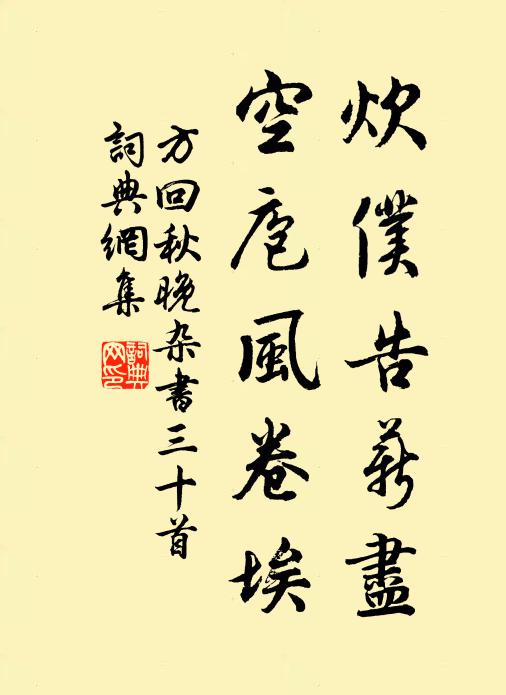 炊僕告薪盡
空庖風卷埃
方回秋晚杂書三十首
詞典網集
詞典
网印